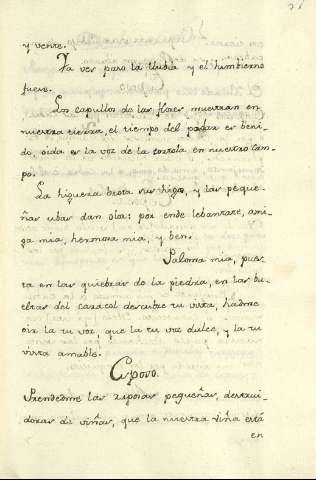 y vente.
Ya ves paso la llubia y el himbierno
fuese.
Los capullos de las flores muestran en
nuestra tierra, el tiempo del podar es beni-
do, oida es la voz de la tortola en nuestro cam-
po.
La higuera brota sus higos, y las peque-
ñas ubas dan olor: por ende lebantate, ami-
ga mia, hermosa mia, y ben.
Paloma mia, pues-
ta en las quiebras de la piedra, en las bu-
eltas del caracol descubre tu vista, hadme
oir la tu voz, que la tu voz dulce, y la tu
vista amable.
Esposo.
Prendedme las raposas pequeñas, destrui-
doras de viñas, que la nuestra viña está
en